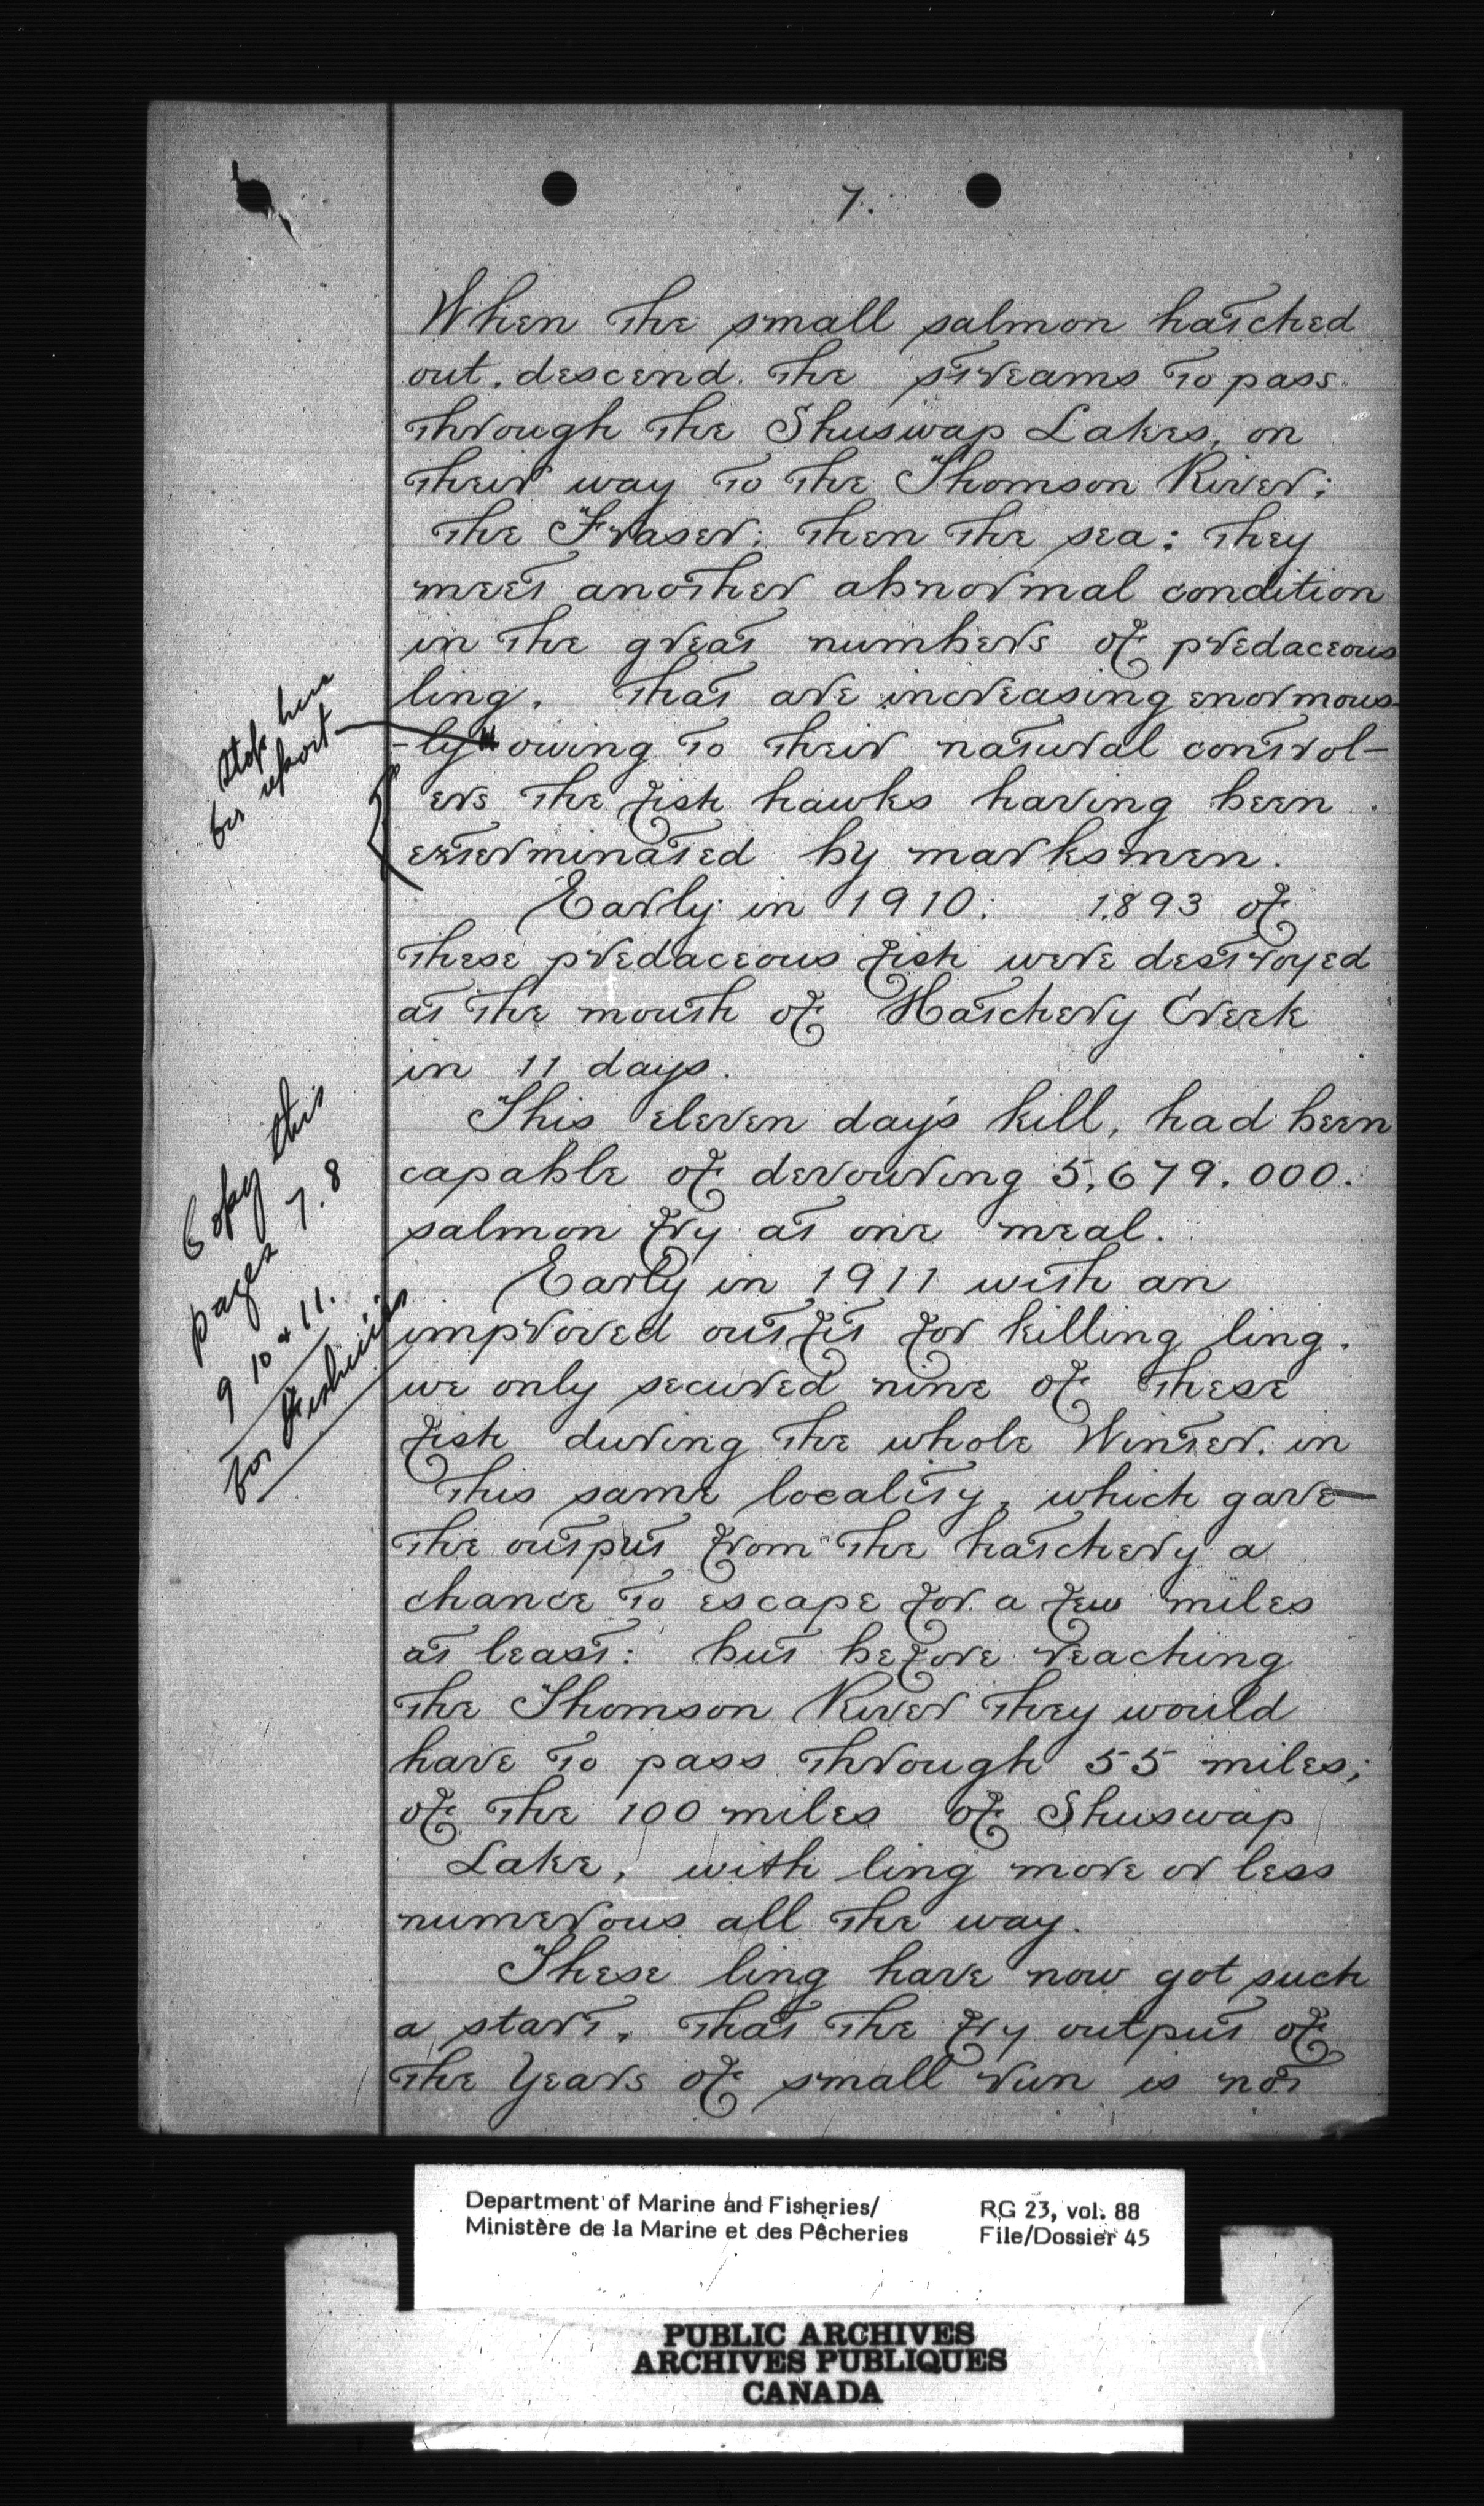 7.
When the small salmon hatched
out. descend. the streams to pass.
through the Shuswap Lakes, on
their way to the Thomson River;
the Fraser; then the sea: they
meet another abnormal condition
in the great numbers of predaceous
ling. that are increasing enormous-
-ly owing to their natural control-
ers the fish hawks having been
exterminated by marksmen.
Stop here
for report
Early in 1910: 1.893 of
these predaceous fish were destroyed
at the mouth of Hatchery Creek
in 11 days.
This eleven day's kill, had been
capable of devouring 5,679.000.
salmon fry at one meal.
Copy this
pages 7. 8
9 10 & 11.
for Fisheries
Early in 1911 with an
improved outfit for killing ling.
we only secured nine of these
fish during the whole Winter. in
this same locality, which gave
the output from the hatchery a
chance to escape for a few miles
at least: but before reaching
the Thomson River they would
have to pass through 55 miles;
of the 100 miles of Shuswap
Lake, with ling more or less
numerous all the way.
These ling have now got such
a start, that the fry output of
the Years of small run is not
Department of Marine and Fisheries/
Ministère de la Marine et des Pêcheries
RG 23, vol. 88
File/Dossier 45
PUBLIC ARCHIVES
ARCHIVES PUBLIQUES
CANADA